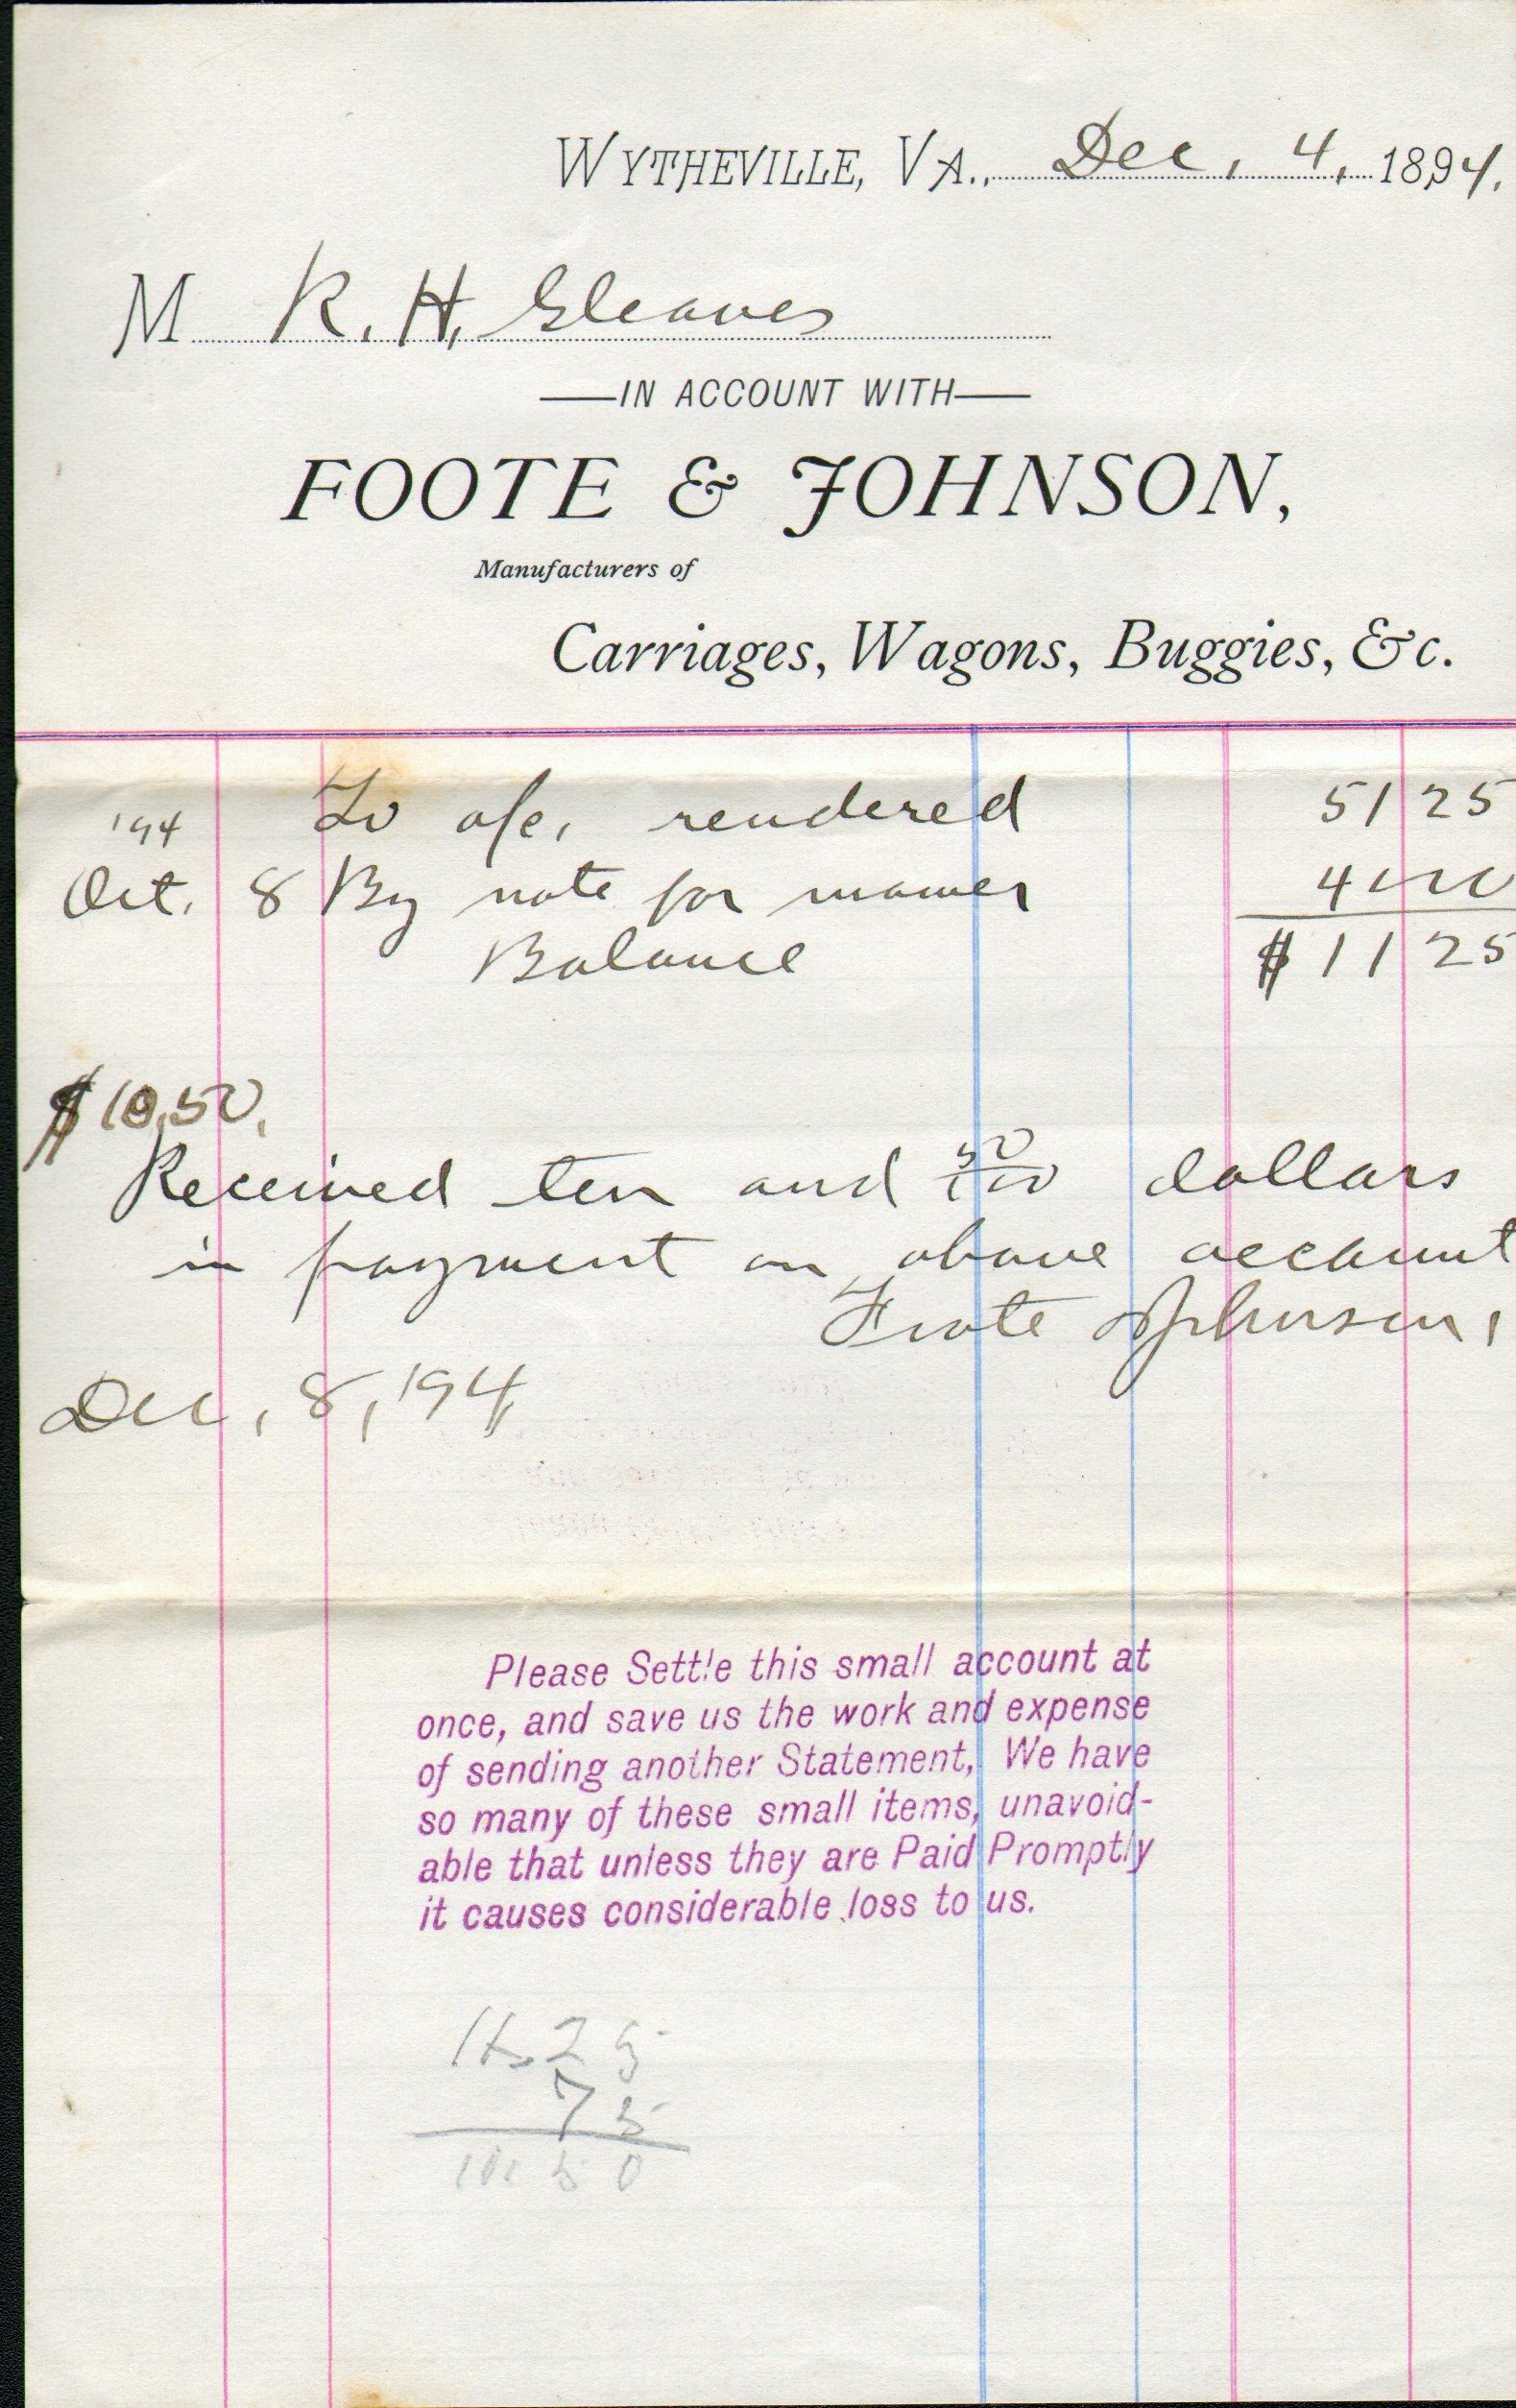 WYTHEVILLE, VA., Dec, 4, 1894.
M R. H, Gleaves
IN ACCOUNT WITH
FOOTE & JOHNSON,
Manufacturers of
Carriages, Wagons, Buggies, &c.
'94 To a/c, rendered 51 25
Oct. 8 By note for mower 40 00
Balance $11 25
$10,50,
Received ten and 50/100 dollars
in payment on above account
Foote & Johnson,
Dec, 8, '94
Please Settle this small account at
once, and save us the work and expense
of sending another Statement, We have
so many of these small items, unavoid-
able that unless they are Paid Promptly
it causes considerable loss to us.
11.25
75
10 50